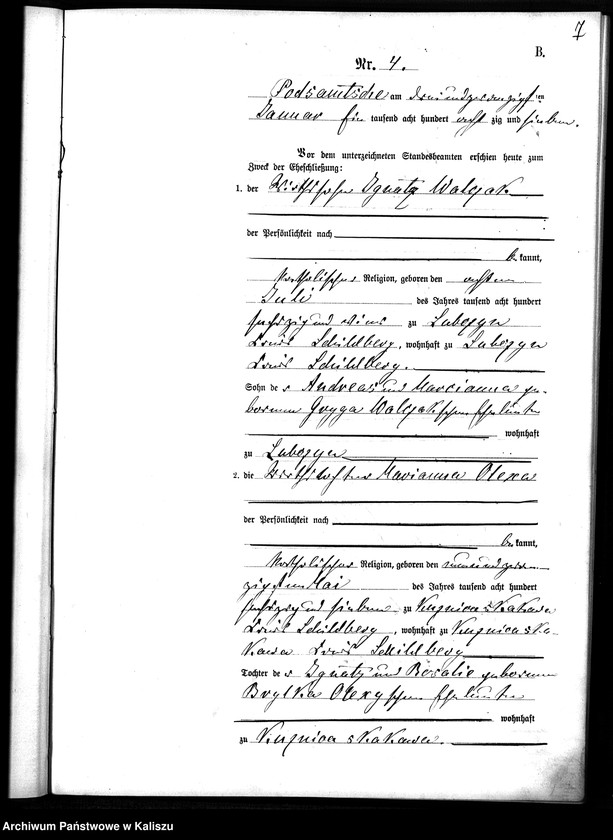 7
B.
Nr. 4.
Podsamtsche am dreiundzwanzigsten
Januar Ein tausend acht hundert acht zig und sieben.
Vor dem unterzeichneten Standesbeamten erschien heute zum
Zweck der Eheschließung:
1. der Wirthssohn Ignatz Walczak
der Persönlichkeit nach
be kannt,
katholischer Religion, geboren den achten
Juli des Jahres tausend acht hundert
sechszig und eins zu
Kreis Schildberg, wohnhaft zu
Kreis Schildberg.
Sohn de r Andreas und Marcianna ge-
borenen Walczakschen Eheleute
wohnhaft
zu
2. die Wirthstochter Marianna Olexa
der Persönlichkeit nach
be kannt,
katholischer Religion, geboren den neunundzwan-
zigsten Mai des Jahres tausend acht hundert
sechszig und sieben zu Kuznica skakawa
Kreis Schildberg, wohnhaft zu Kuznica ska-
kawa Kreis Schildberg
Tochter de r Ignatz und Rosalie geborenen
Olexyschen Eheleute
wohnhaft
zu Kuznica skakawa.
Archiwum Państwowe w Kaliszu